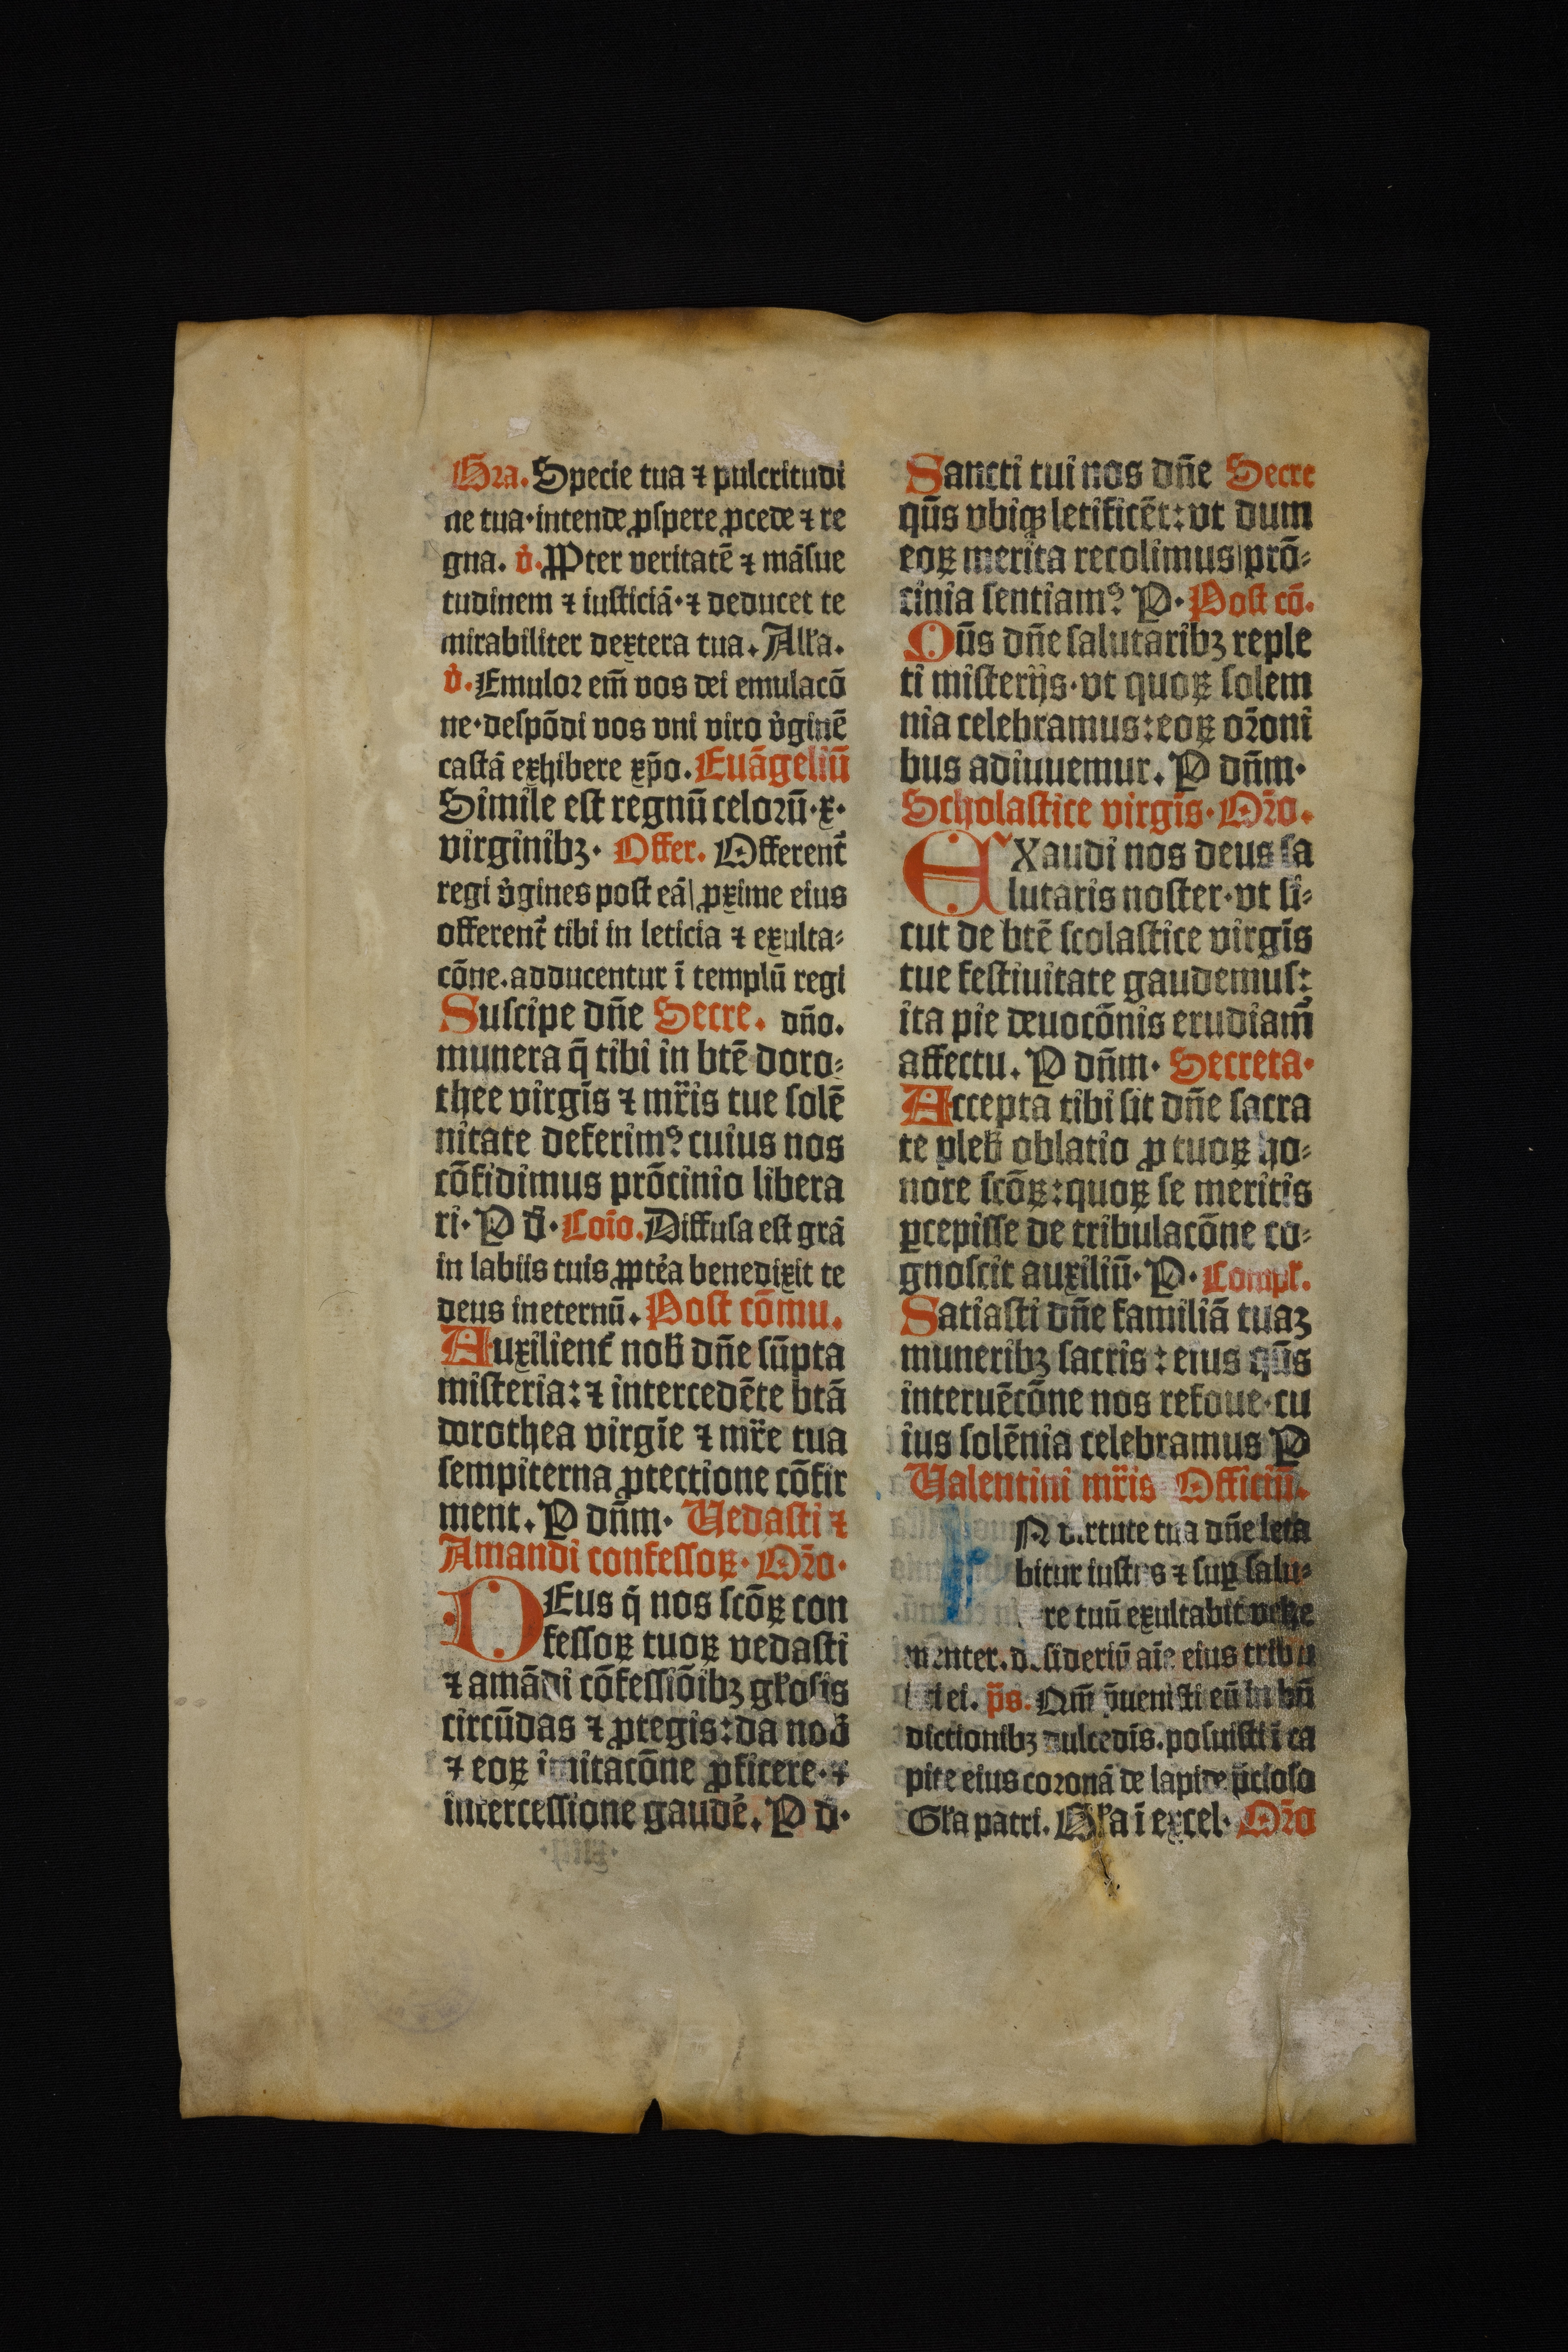 Gra. Specie tua ⁊ pulcritudi
ne tua·intende ꝓspere ꝓcede ⁊ re
gna. v̾. Ꝓpter veritatē ⁊ māsue
tudinem ⁊ iusticiā·⁊ deducet te
mirabiliter dextera tua. Alľa.
v̾. Emulor em̄ vos dei emulacō
ne·despōdi vos vni viro v̾ginē
castā exhibere xp̄o. Euāgeliū
Simile est regnū celorū·x·
virginibꝫ· Offer. Offerent᷑
regi v̾gines post eā| ꝓxime eius
offerent᷑ tibi in leticia ⁊ exulta⸗
cōne.adducentur ī templū regi
Suscipe dn̄e Secre. dn̄o.
munera q̄ tibi in btē doro⸗
thee virgīs ⁊ mr̄is tue solē
nitate deferimꝰ cuius nos
cōfidimus prōcinio libera
ri· P d̄· Cōio. Diffusa est grā
in labiis tuis ꝓpt̾ea benedixit te
deus ineternū. Post cōmu.
Auxilient᷑ nob̄ dn̄e sūpta
misteria: ⁊ intercedēte btā
dorothea virgīe ⁊ mr̄e tua
sempiterna ꝓtectione cōfir
ment. P dn̄m· Vedasti ⁊
Amandi confessoꝝ· Oro̅·
DEus q̇ nos scōꝝ con
fessoꝝ tuoꝝ vedasti
⁊ amādi cōfessiōibꝫ gľosis
circūdas ⁊ ꝓtegis: da nob̄
⁊ eoꝝ imitacōne ꝓficere·⁊
intercessione gaude̾. P d̄·
Sancti tui nos dn̄e Secre
qūs vbiqꝫ letificēt: vt dum
eoꝝ merita recolimus| prō⸗
cinia sentiamꝰ P· Post cō.
Qūs dn̄e salutaribꝫ reple
ti misterijs·vt quoꝝ solem
nia celebramus: eoꝝ or̄oni
bus adiuuemur. P dn̄m·
Scholastice virgīs· Oro̅.
EXaudi nos deus sa
lutaris noster·vt si⸗
cut de btē scolastice virgīs
tue festiuitate gaudemus:
ita pie deuocōnis erudiam᷑
affectu. P dn̄m· Secreta·
Accepta tibi sit dn̄e sacra
te pleb̄ oblatio ꝓ tuoꝝ ho⸗
nore scōꝝ: quoꝝ se meritis
ꝑcepisse de tribulacōne co⸗
gnoscit auxiliū· P· Compľ.
Satiasti dn̄e familiā tuaꝫ
muneribꝫ sacris: eius qūs
interuēcōne nos refoue·cu
ius solēnia celebramus P
Valentini mr̄is Officiū.
N virtute tua dn̄e leta
bitur iustus ⁊ suꝑ salu⸗
re tuū exultabit vehe
menter. desideriū aīe eius tribu
ei. p̄s. Qm̄ p̄uenisti eū in bn̄
dictionibꝫ dulcedīs. posuisti ī ca
pite eius coronā de lapide p̄cioso
Gľa patri. Gľa ī excel· Oro̅